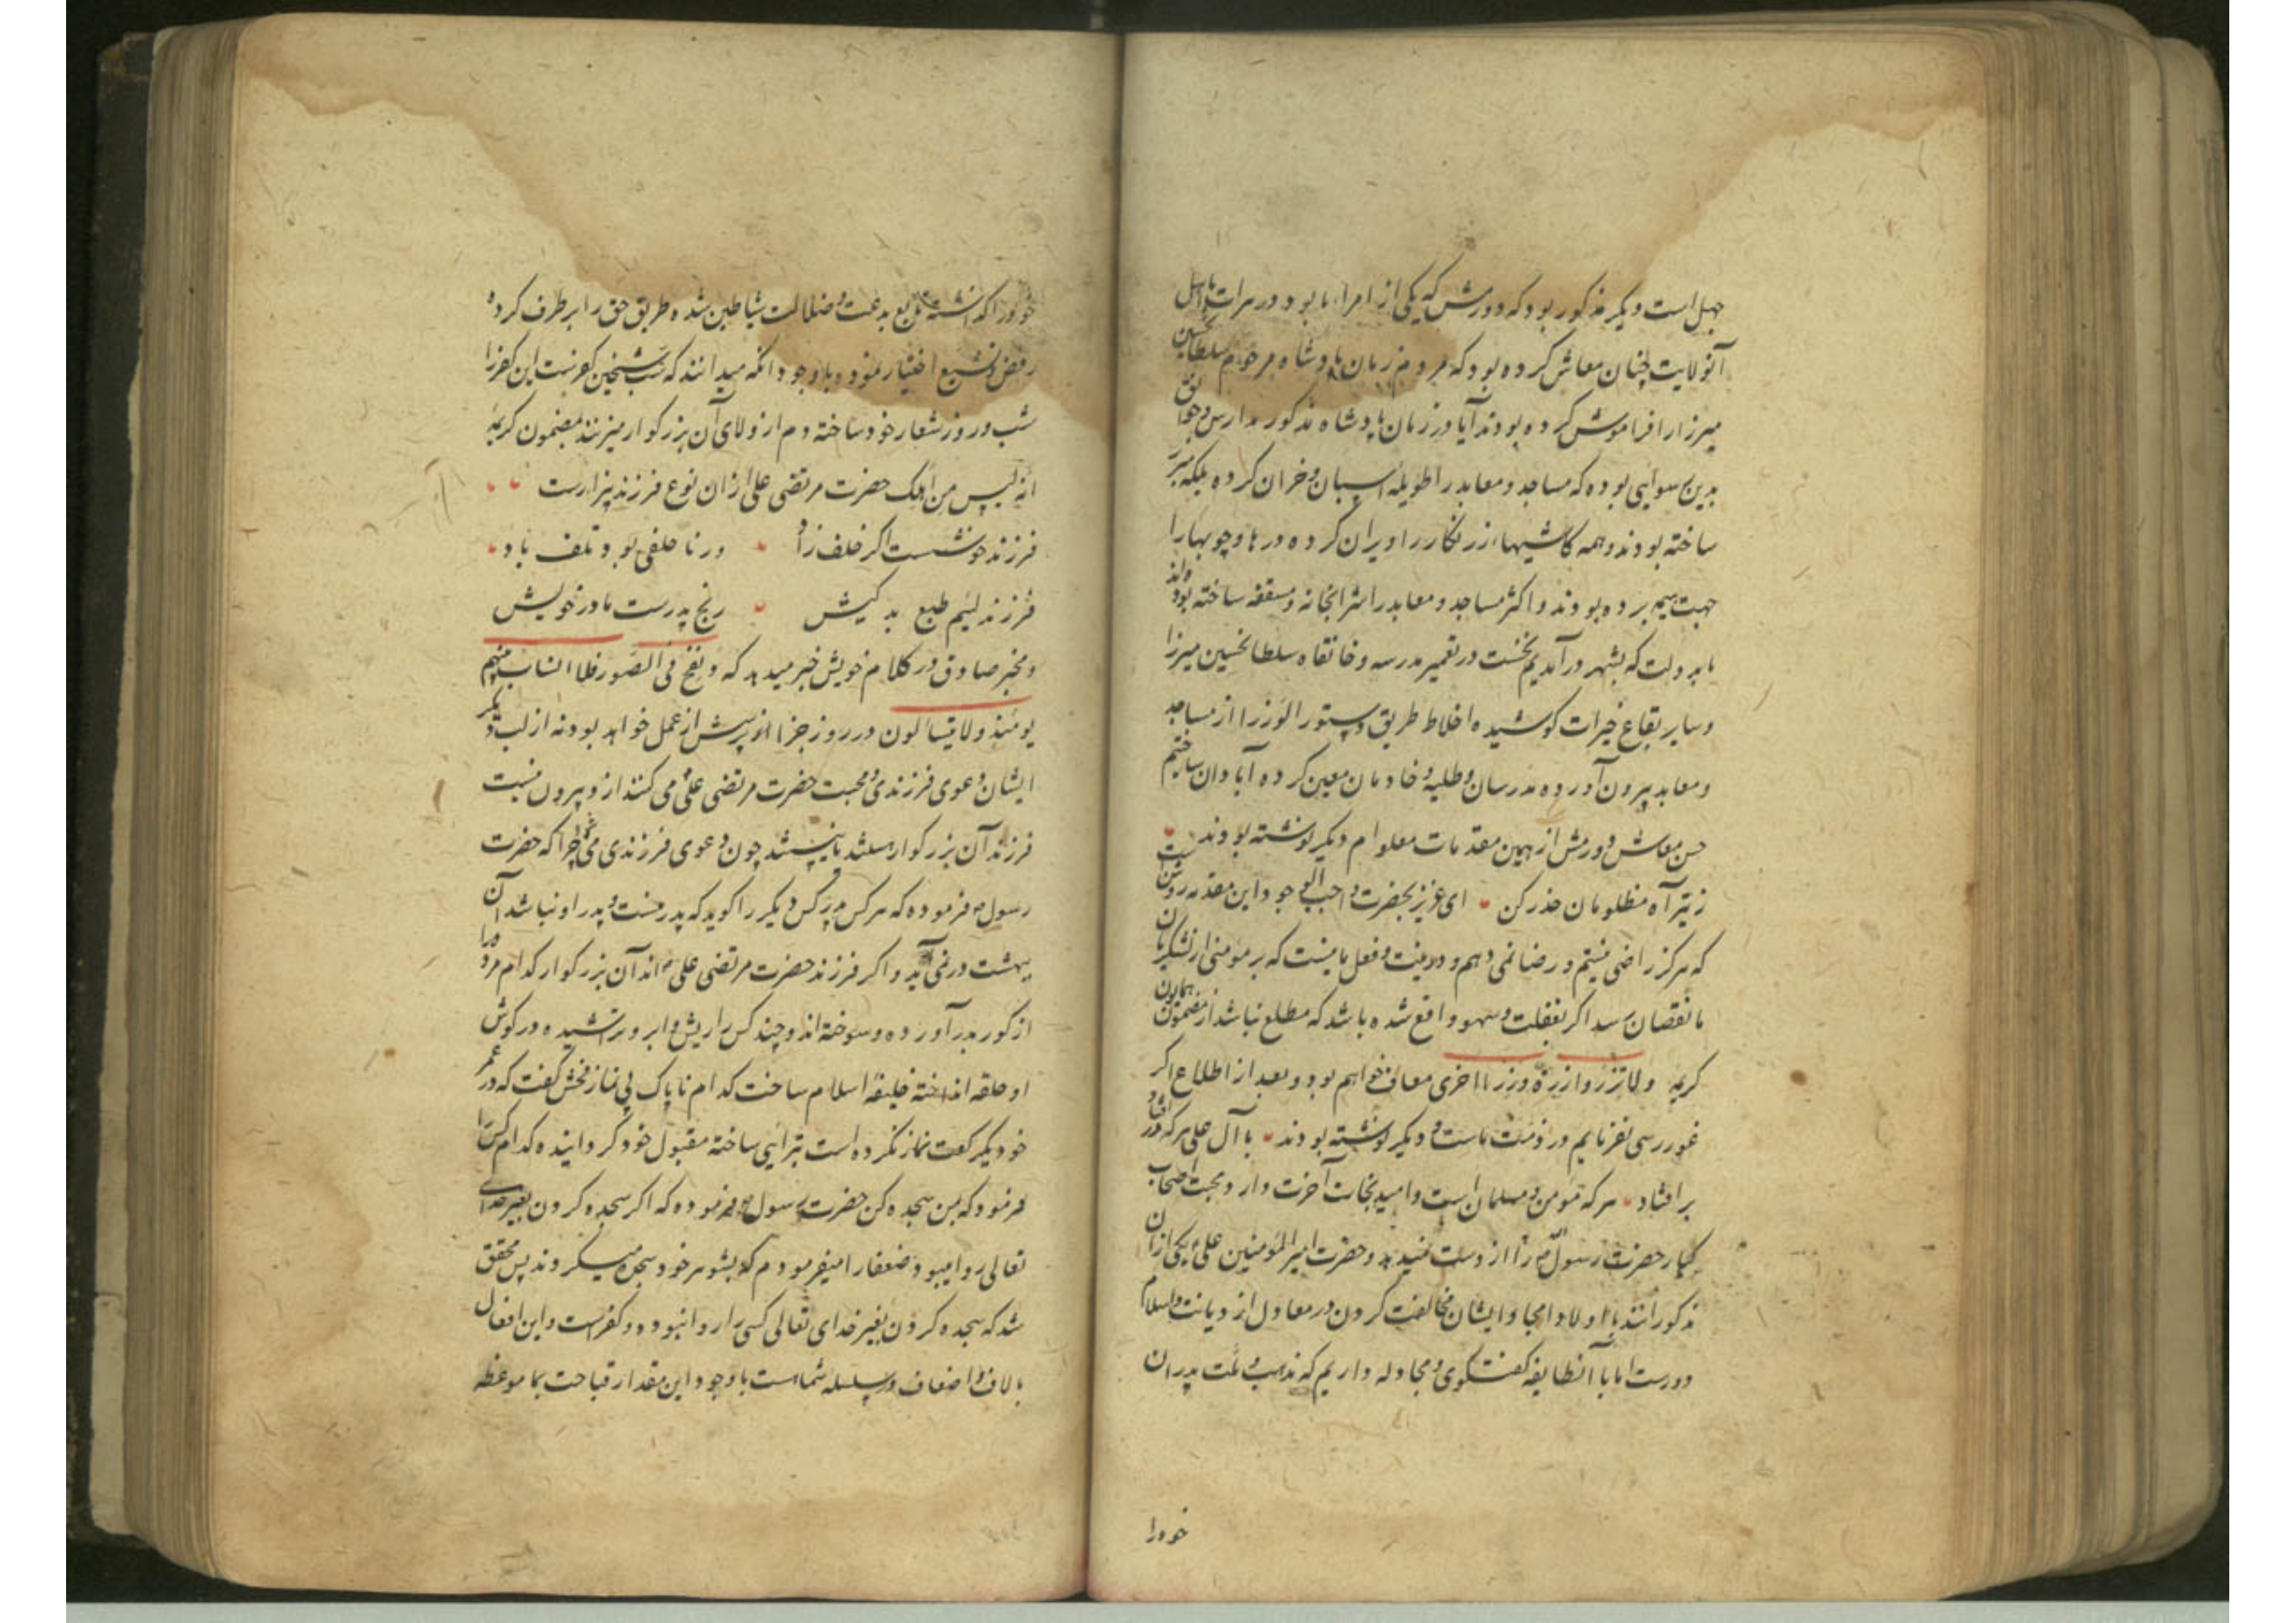 جهل است و دیگر مذکور بود که دورمش که یکی از امراء ما بود در هرات با اهل
آنولایت چنان معاش کرده بود که مردم زمان پادشاه مرحوم سلطانحسین
میرزا را فراموش کرده بودند آیا در زمان پادشاه مذکور مدارس و جوامع
بدین رسوایی بوده که مساجد و معابد را طویله اسپان و خران کرده بلکه
ساخته بودند و همه کاشیهاء زرنگار را ویران کرده درها و چوبها را
جهت هیمه برده بودند و اکثر مساجد و معابد را شرابخانه و مسقفه ساخته بودند
ما بدولت که بشهر در آمدیم نخست در تعمیر مدرسه و خانقاه سلطانحسین میرزا
و سایر بقاع خیرات کوشیده اخلاط طریق دستور الوزرا از مساجد
و معابد بیرون آورده مدرسان و طلبه و خادمان معین کرده آبادان ساختیم
حسن معاش دورمش از همین مقدمات معلوم دیگر نوشته بودند
ز تیر آه مظلومان حذر کن ای عزیز بحضرت واجب الوجود این مقدمه روشن است
که هرگز راضی نیستم و رضا نمی دهم و در نیت و فعل ما نیست که بر مومنی از لشکریان
ما نقصان رسد اگر بغفلت و سهو واقع شده باشد که مطلع نباشد از مضمون همایون
کریمه ولا تزر وازرة وزر اخری معاف خواهم بود و بعد از اطلاع اگر
غوررسی نفرمایم در ذمت ماست و دیگر نوشته بودند با آل علی هرکه در افتاد
بر افتاد هر که مومن و مسلمان است و امید نجات آخرت دارد محبت اصحاب
کبار حضرت رسول را از دست نمیدهد و حضرت امیر المومنین علی یکی از ان
مذکورانند با اولاد امجاد ایشان مخالفت کردن در معاول از دیانت و اسلام
دورست اما با آنطایفه گفتگوی و مجادله داریم که مذهب و ملت پدران
خود را
خود را گذاشته تابع بدعت و ضلالت شیاطین شده طریق حق را برطرف کرده
رفض و تشیع اختیار نموده و با وجود آنکه میدانند که سب شیخین کفرست این کفر را
شب و روز شعار خود ساخته دم از ولای آن بزرگوار میزنند بمضمون کریمه
انه لیس من اهلک حضرت مرتضی علی از ان نوع فرزند بیزارست
فرزند خوشست اگر خلف زاد ور نا خلفی بود تلف باد
فرزند لئیم طبع بد کیش رنج پدرست مادر خویش
و مخبر صادق در کلام خویش خبر میدهد که و نفخ فی الصور فلا انساب بینهم
یومئذ ولا یتساءلون در روز جزا از پرسش از عمل خواهد بود نه از نسب دیگر
ایشان دعوی فرزندی و محبت حضرت مرتضی علی می کنند از دو بیرون نیست
فرزند آن بزرگوار هستند یا نیستند چون دعوی فرزندی می کنند چرا که حضرت
رسول فرموده که هر کس هر کس دیگر را گوید که پدر منست و پدر او نباشد آن
بهشت در نمی آید و اگر فرزند حضرت مرتضی علی اند آن بزرگوار کدام مرده را
از گور بدر آورده و سوخته اند و چند کس را ریش و ابرو تراشیده در گوش
او حلقه انداخته خلیفه اسلام ساخت کدام ناپاک بی نماز فحش گفت که در عمر
خود یکرکعت نماز نکرده است تبرایی ساخته مقبول خود گردانیده کدام کس را
فرمود که بمن سجده کن حضرت رسول فرموده که اگر سجده کردن بغیر خدای
تعالی روا میبود ضعفا را میفرمودم که بشوهر خود سجده میکردند پس محقق
شد که سجده کردن بغیر خدای تعالی کسی را روا نبوده و کفر است و این افعال
بالاف و اضعاف در سلسله شماست با وجود این مقدار قباحت بما موعظه